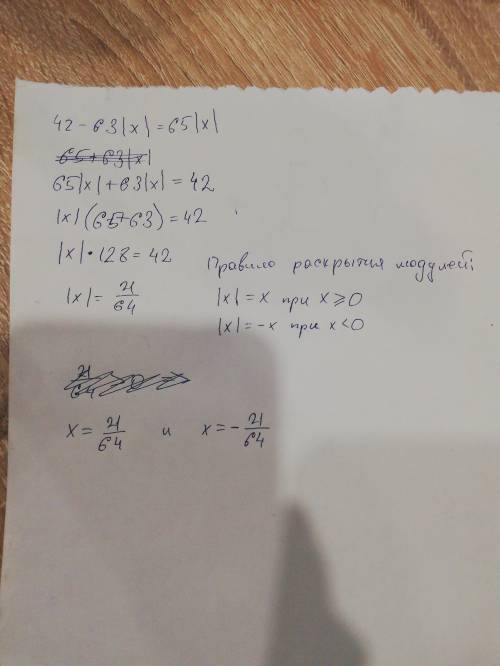 42 - 63|x| = 65|x|
65|x| + 63|x| = 42
|x| (65+63) = 42
|x| • 128 = 42
|x| = 21/64
Правило раскрытия модулей:
|x| = x при x ⩾ 0
|x| = -x при x < 0
x = 21/64 и x = - 21/64